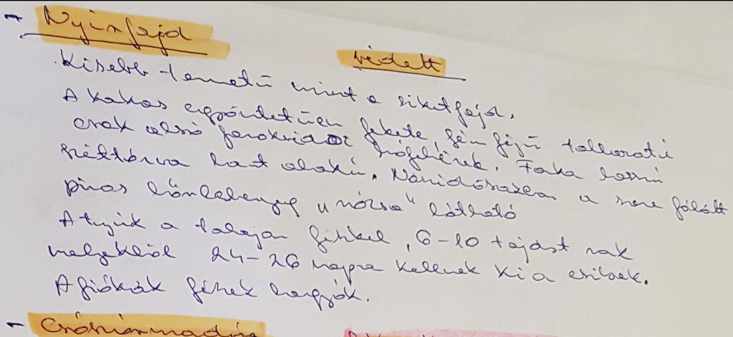 - Nyírfajd védett
Kisebb termetű mint a siketfajd.
A kakas egyöntetűen fekete fémfényű tollazatú
csak alsó farokfedői fehérek. Farka hosszú
széttárva lant alakú. Nászidőszakban a szeme fölött
piros bőrlebenyeg "rózsa" látható
A tyúk a talajon fészkel, 6-10 tojást rak
melyekből 24-26 napra kelnek ki a csibék.
A fiókák fészekhagyók.